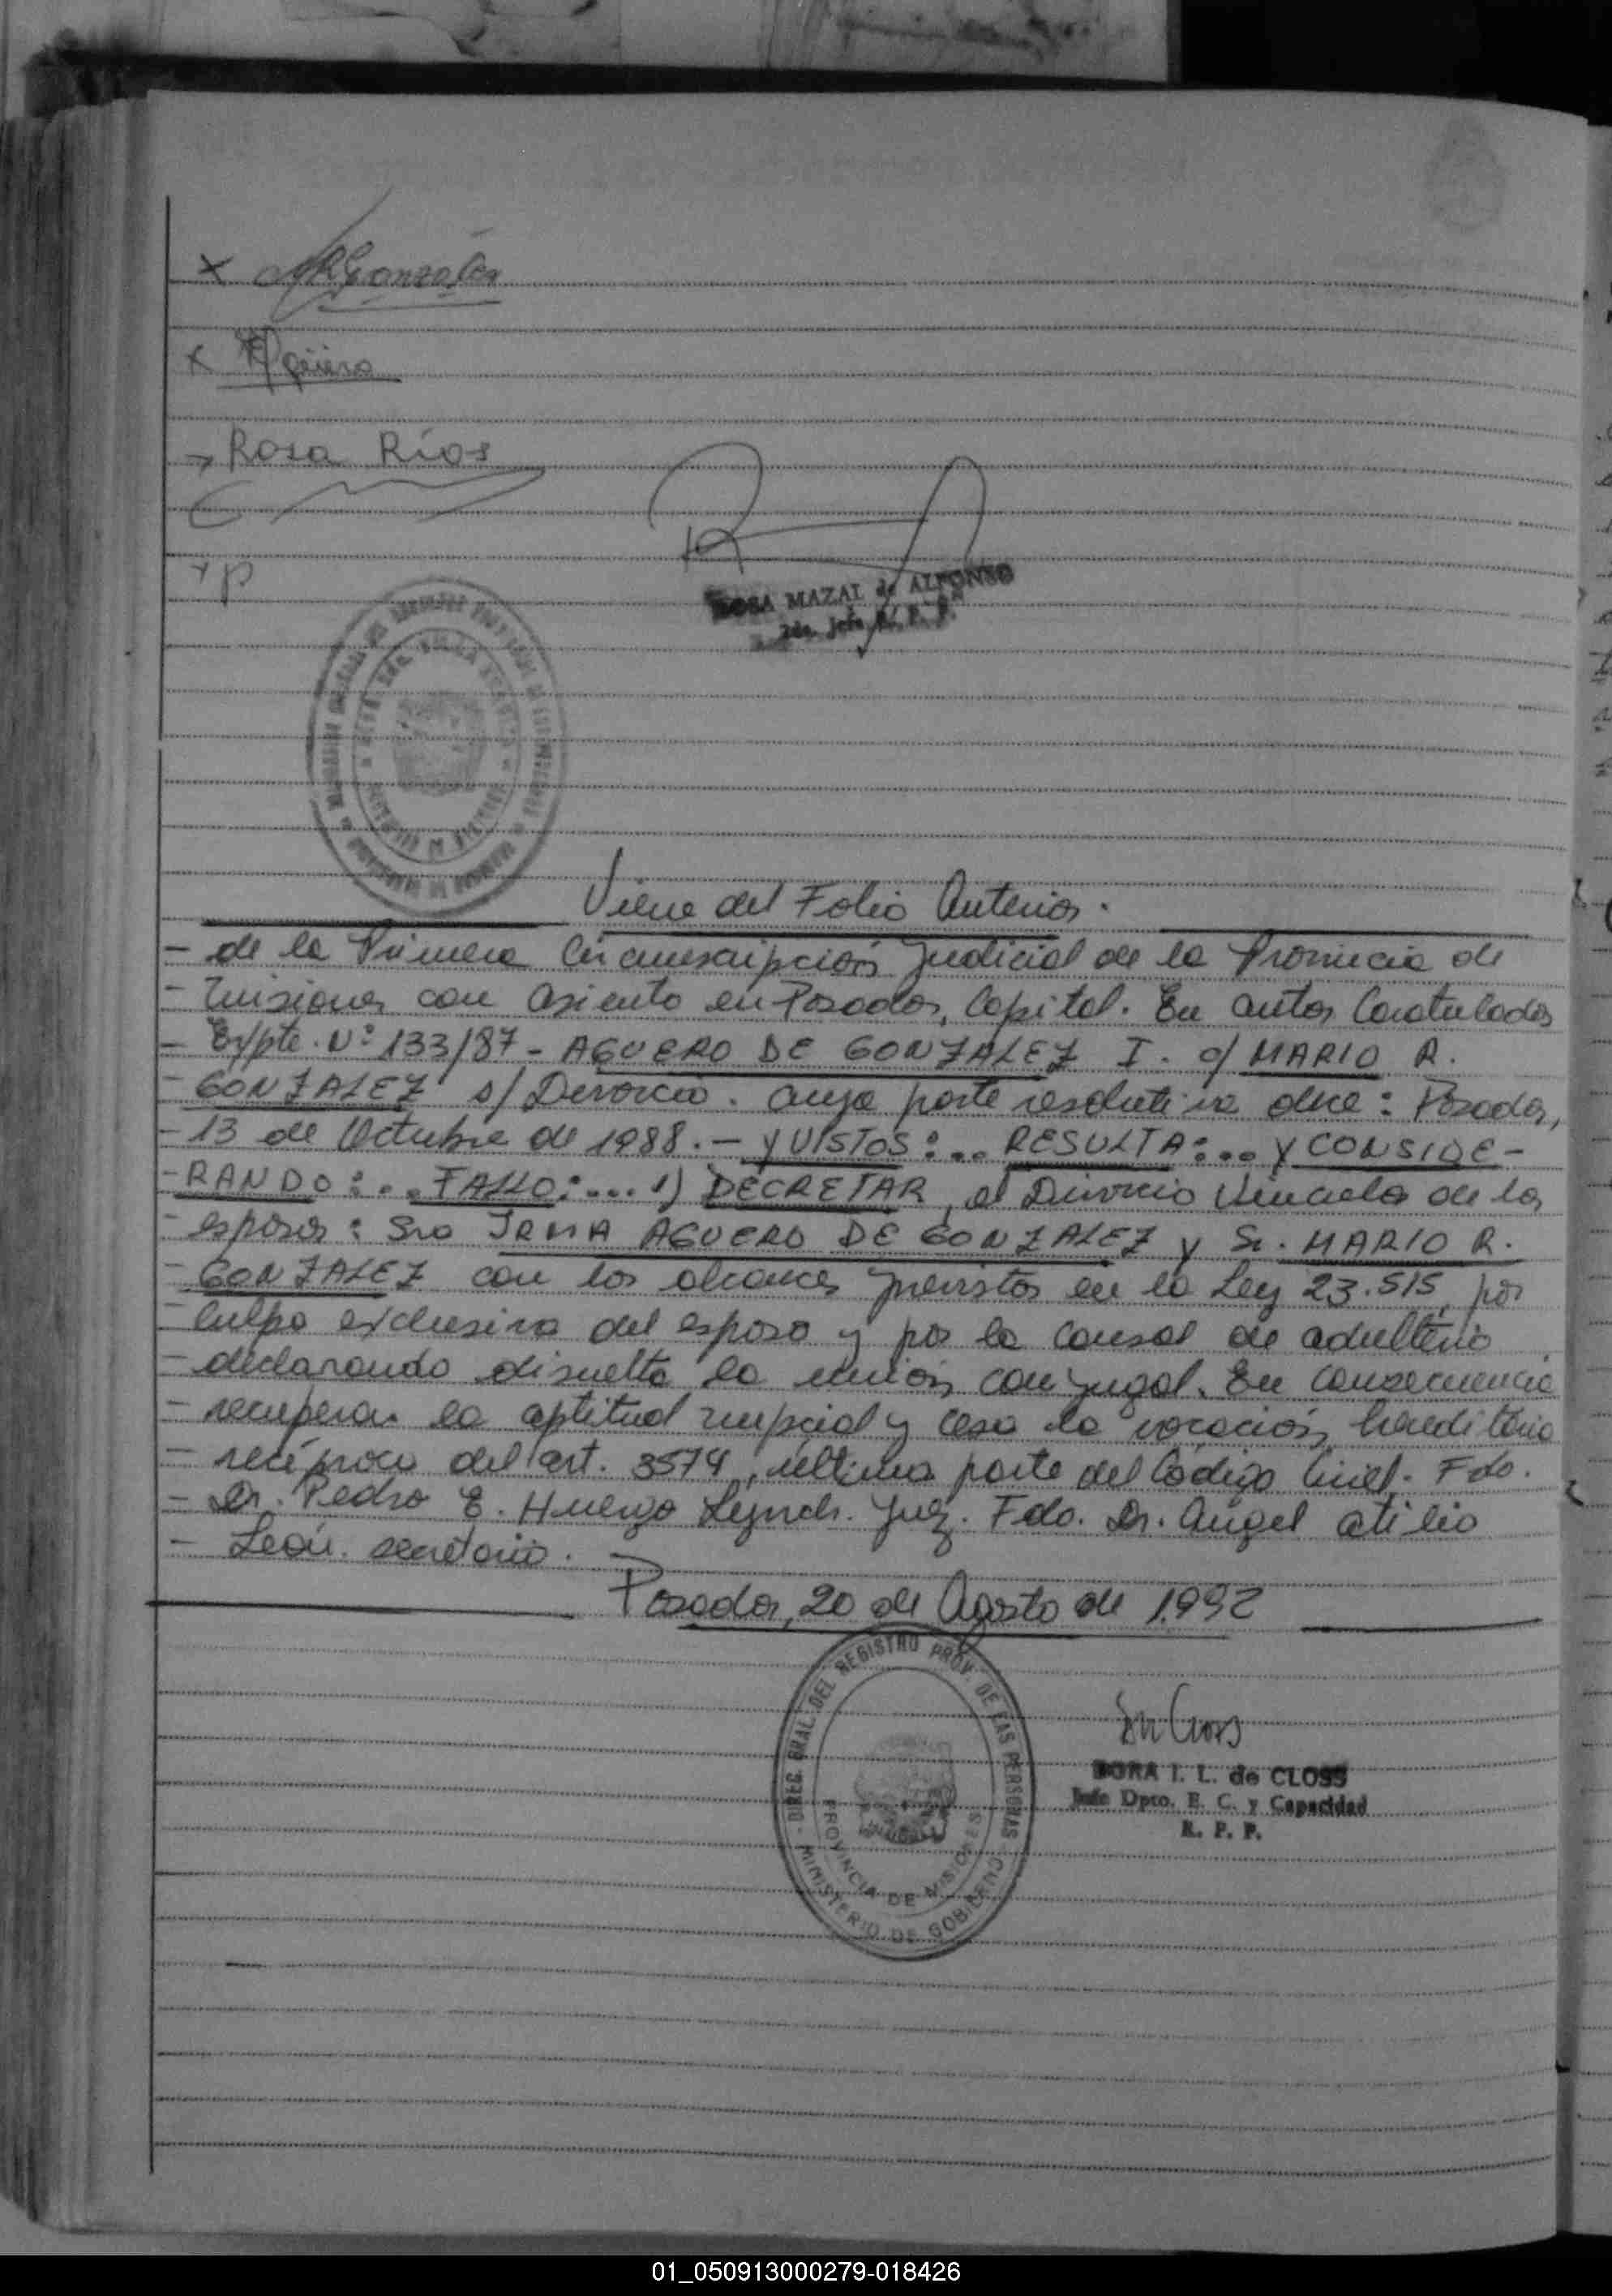 x MRGonzález
x Agüero
Rosa Ríos
ROSA MAZAL de ALFONSO
2da. Jefe R. P. P.
Viene del Folio Anterior.
- de la Primera Circunscripción Judicial de la Provincia de
- Misiones con asiento en Posadas, Capital. En autos Caratulados
- Expte. Nº 133/87 - AGUERO DE GONZALEZ I. c/ MARIO R.
- GONZALEZ s/ Divorcio. cuya parte resolutiva dice: Posadas,
- 13 de Octubre de 1988. - Y VISTOS: ... RESULTA: ... Y CONSIDE-
- RANDO: ... FALLO: ... 1) DECRETAR, el Divorcio Vincular de los
- esposos: Sra IRMA AGUERO DE GONZALEZ y Sr. MARIO R.
- GONZALEZ con los alcances previstos en la Ley 23.515, por
- culpa exclusiva del esposo y por la causal de adulterio
- declarando disuelta la unión conyugal. En consecuencia
- recuperan la aptitud nupcial y cesa la vocación hereditaria
- recíproca del art. 3574, última parte del Código Civil. Fdo.
- Dr. Pedro E. Huergo Lynch. Juez. Fdo. Dr. Angel Atilio
- León. secretario.
Posadas, 20 de Agosto de 1.992
DIREG. GRAL. DEL REGISTRO PROV. DE LAS PERSONAS
PROVINCIA DE MISIONES
MINISTERIO DE GOBIERNO
DORA I. L. de CLOSS
Jefe Dpto. E. C. y Capacidad
R. P. P.
01_050913000279-018426